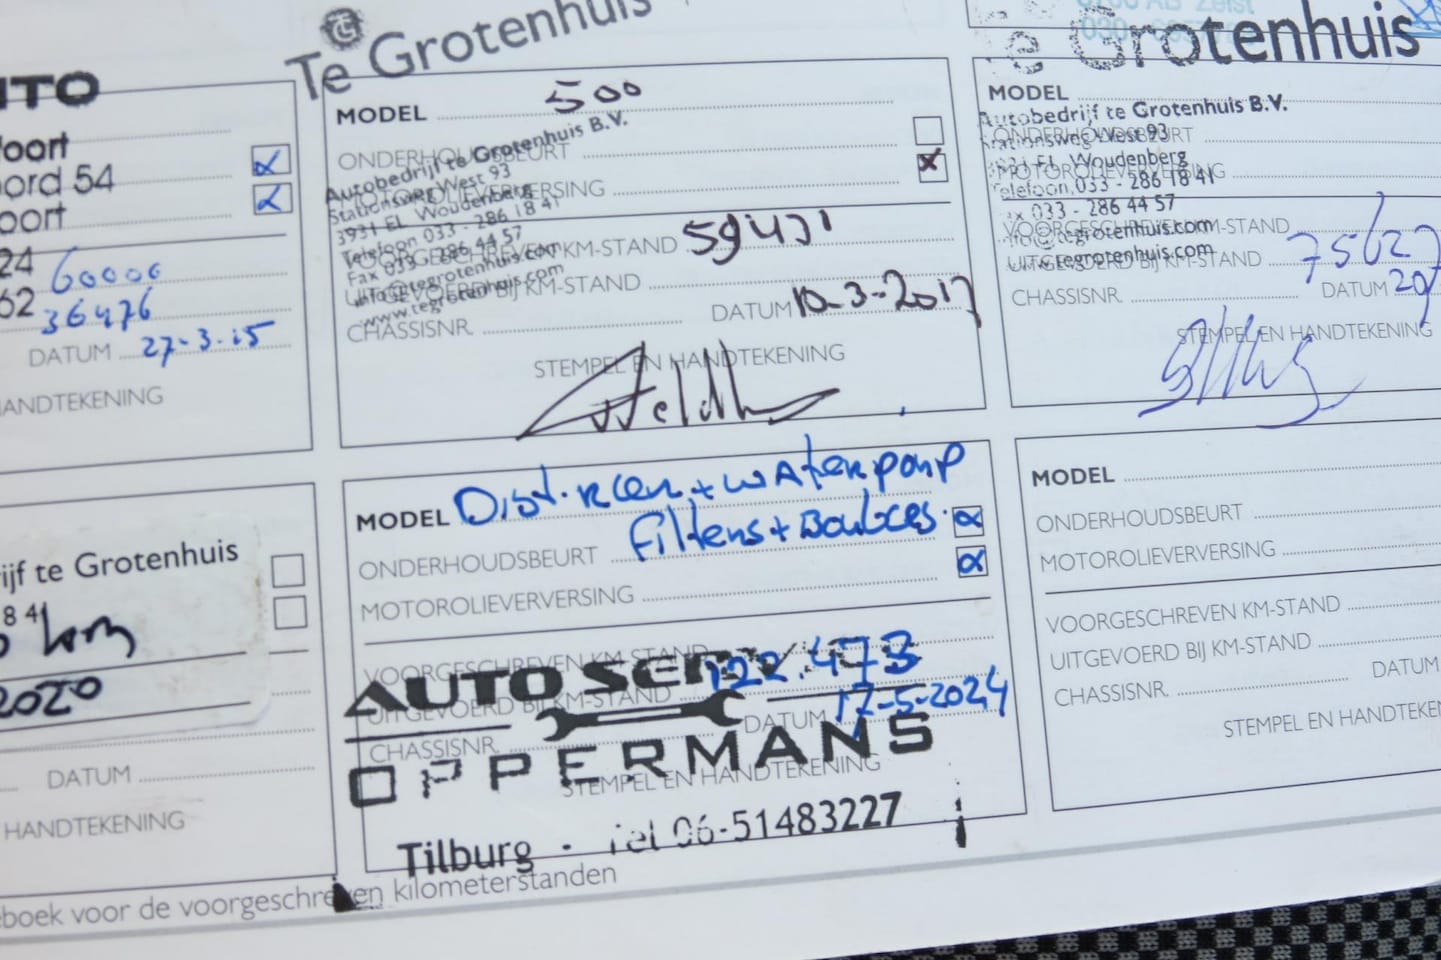 Te Grotenhuis
Te Grotenhuis
foort
oord 54
oort
24 60000
62 36476
DATUM 27-3-15
HANDTEKENING
MODEL 500
Autobedrijf te Grotenhuis B.V.
ONDERHOUDSBEURT
Stationsweg West 93
MOTOROLIEVERVERSING
3931 EL Woudenberg
Telefoon 033 - 286 18 41
Fax 033 - 286 44 57
VOORGESCHREVEN KM-STAND 59431
info@tegrotenhuis.com
UITGEVOERD BIJ KM-STAND
www.tegrotenhuis.com
CHASSISNR.
DATUM 10-3-2017
STEMPEL EN HANDTEKENING
MODEL
Autobedrijf te Grotenhuis B.V.
ONDERHOUDSBEURT
Stationsweg West 93
3931 EL Woudenberg
MOTOROLIEVERVERSING
Telefoon 033 - 286 18 41
Fax 033 - 286 44 57
VOORGESCHREVEN KM-STAND
info@tegrotenhuis.com
UITGEVOERD BIJ KM-STAND
tegrotenhuis.com
CHASSISNR.
DATUM 20
STEMPEL EN HANDTEKENING
ijf te Grotenhuis
8 41
km
2020
DATUM
HANDTEKENING
MODEL Dist.riem + waterpomp
Filters + Boubces.
ONDERHOUDSBEURT
MOTOROLIEVERVERSING
VOORGESCHREVEN KM-STAND 122.473
AUTO SERVICE
UITGEVOERD BIJ KM-STAND
DATUM 17-5-2024
CHASSISNR.
OPPERMANS
STEMPEL EN HANDTEKENING
Tilburg - Tel 06-51483227
MODEL
ONDERHOUDSBEURT
MOTOROLIEVERVERSING
VOORGESCHREVEN KM-STAND
UITGEVOERD BIJ KM-STAND
DATUM
CHASSISNR.
STEMPEL EN HANDTEKEN
boek voor de voorgeschreven kilometerstanden